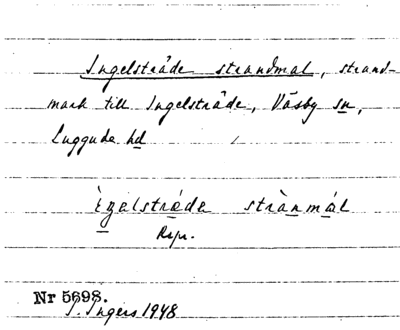 Ingelsträde strandmal, strand-
mark till Ingelsträde, Väsby sn,
Luggude hd
strànmál
Nr 5698.
I. Ingers 1948